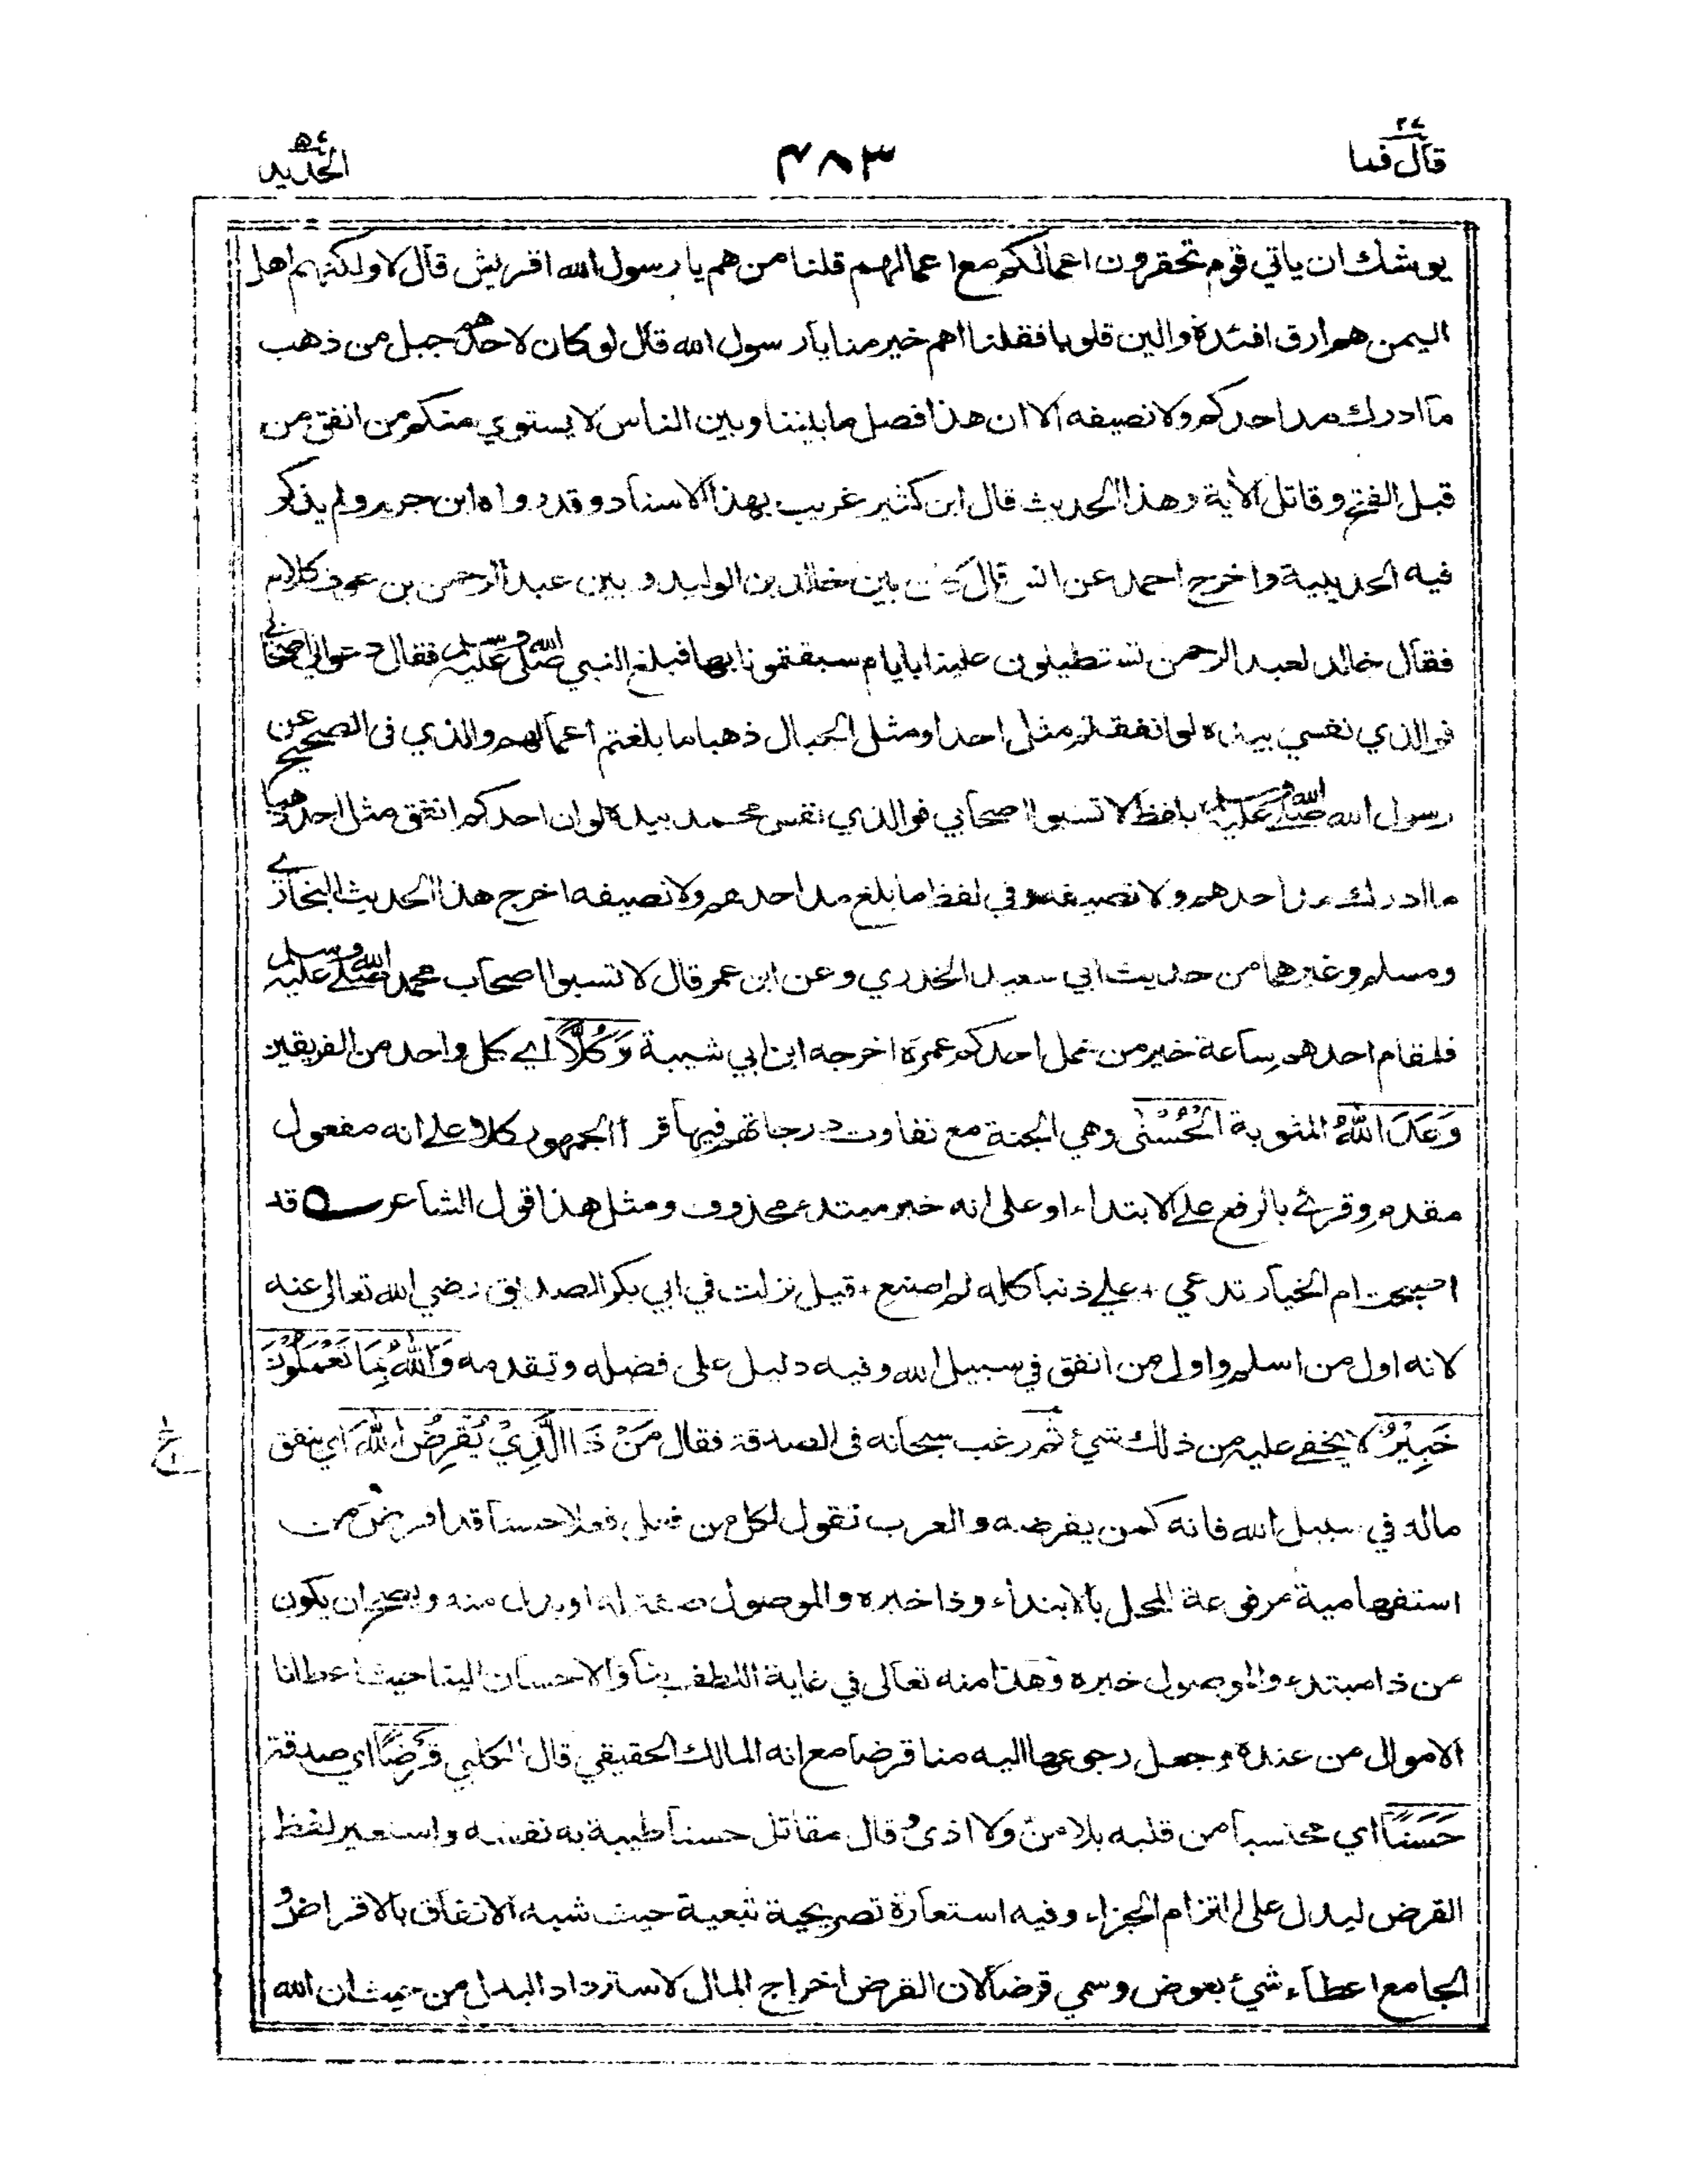 قال فما ٢٧
٤٨٣
الحديد ٥٧
يوشك ان ياتي قوم تحقرون اعمالكم مع اعمالهم قلنا من هم يا رسول الله اقريش قال لا ولكنهم اهل
اليمن هم ارق افئدة والين قلوبا فقلنا اهم خير منا يا رسول الله قال لو كان لاحدهم جبل من ذهب
ما ادرك مد احدكم ولا نصيفه الا ان هذا فصل ما بيننا وبين الناس لا يستوي منكم من انفق من
قبل الفتح و قاتل الأية وهذا الحديث قال ابن كثير غريب بهذا الاسناد وقد رواه ابن جرير ولم يذكر
فيه الحديبية واخرج احمد عن انس قال كان بين خالد بن الوليد وبين عبد الرحمن بن عوف كلام
فقال خالد لعبد الرحمن تستطيلون علينا بايام سبقتمونا بها فبلغ النبي صلى الله عليه وسلم فقال دعوا لي اصحابي
فوالذي نفسي بيده لو انفقتم مثل احد او مثل الجبال ذهبا ما بلغتم اعمالهم والذي في الصحيح عن
رسول الله صلى الله عليه وسلم بلفظ لا تسبوا اصحابي فوالذي نفس محمد بيده لو ان احدكم انفق مثل احد ذهبا
ما ادرك مد احدهم ولا نصيفه وفي لفظ ما بلغ مد احدهم ولا نصيفه اخرج هذا الحديث البخاري
ومسلم وغيرهما من حديث ابي سعيد الخدري وعن ابن عمر قال لا تسبوا اصحاب محمد صلى الله عليه وسلم
فلمقام احدهم ساعة خير من عمل احدكم عمره اخرجه ابن ابي شيبة وَكُلًّا اي كل واحد من الفريقين
وَعَدَ اللّٰهُ المثوبة الْحُسْنٰى وهي الجنة مع تفاوت درجاتهم فيها قرأ الجمهور كلا على انه مفعول
مقدم وقرئ بالرفع على الابتداء او على انه خبر مبتدء محذوف ومثل هذا قول الشاعر ـ قد
اصبحت ام الخيار تدعي + علي ذنبا كله لم اصنع + قيل نزلت في ابي بكر الصديق رضي الله تعالى عنه
لانه اول من اسلم واول من انفق في سبيل الله وفيه دليل على فضله وتقدمه وَاللّٰهُ بِمَا تَعْمَلُوْنَ
خَبِيْرٌ لا يخفى عليه من ذلك شيئ ثم رغب سبحانه في الصدقة فقال مَنْ ذَا الَّذِيْ يُقْرِضُ اللّٰهَ اي ينفق
ماله في سبيل الله فانه كمن يقرضه والعرب تقول لكل من فعل فعلا حسنا قد اقرض ومن
استفهامية مرفوعة المحل بالابتداء وذا خبره والموصول صفة له او بدل منه ويصح ان يكون
من ذا مبتدء والموصول خبره وهذا منه تعالى في غاية اللطف بنا والاحسان الينا حيث اعطانا
الاموال من عنده وجعل رجوعها اليه منا قرضا مع انه المالك الحقيقي قال الكلبي قَرْضًا اي صدقة
حَسَنًا اي محتسبا من قلبه بلا من ولا اذى وقال مقاتل حسنا طيبة به نفسه واستعير لفظ
القرض ليدل على التزام الجزاء وفيه استعارة تصريحية تبعية حيث شبه الانفاق بالاقراض و
الجامع اعطاء شيئ بعوض وسمي قرضا لان القرض اخراج المال لاسترداد البدل من حيث ان الله